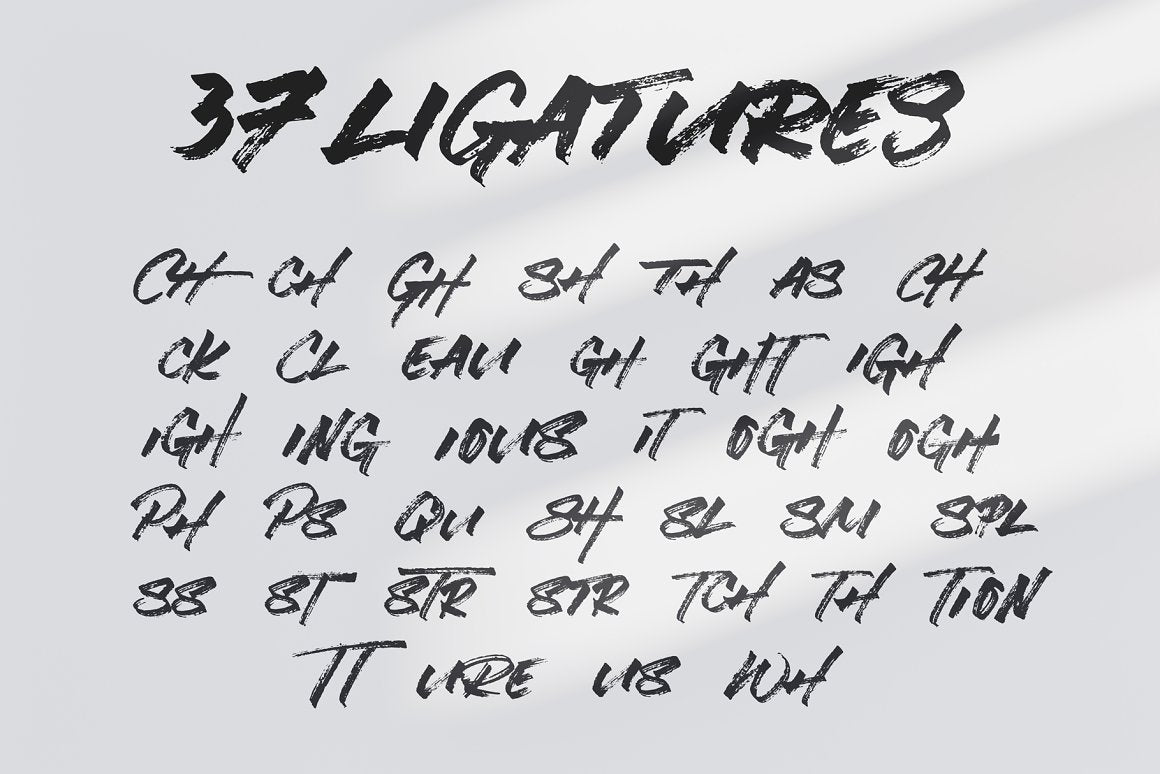 37 LIGATURES
CH CH GH SH TH AS CH
CK CL EAU GH GHT IGH
IGH ING IOUS IT OGH OGH
PH PS QU SH SL SM SPL
SS ST STR STR TCH TH TION
TT URE US WH